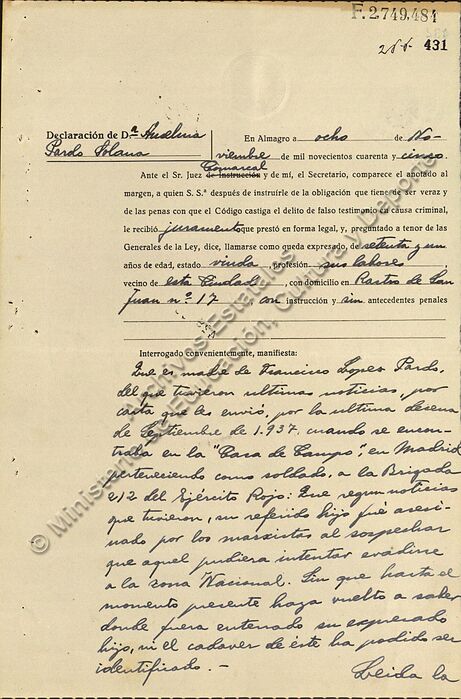 F.2749,484
266 431
Declaración de Dª Anselma
Pardo Solana
En Almagro a ocho de No-
viembre de mil novecientos cuarenta y cinco.
Comarcal
Ante el Sr. Juez de instrucción y de mí, el Secretario, comparece el anotado al
margen, a quien S. S.ª después de instruírle de la obligación que tiene de ser veraz y
de las penas con que el Código castiga el delito de falso testimonio en causa criminal,
le recibió juramento que prestó en forma legal, y, preguntado a tenor de las
Generales de la Ley, dice, llamarse como queda expresado, de setenta y un
años de edad, estado viuda, profesión sus labores
vecino de esta Ciudad, con domicilio en Rastro de San
Juan nº 17, con instrucción y sin antecedentes penales
Interrogado convenientemente, manifiesta:
Que es madre de Francisco Lopez Pardo,
del que tuvieron ultimas noticias, por
carta que les envió, por la ultima decena
de Septiembre de 1.937, cuando se encon-
traba en la "Casa de Campo", en Madrid
perteneciendo como soldado, a la Brigada
nº 12 del Ejército Rojo: Que segun noticias
que tuvieron, su referido hijo fué asesi-
nado por los marxistas al sospechar
que aquel pudiera intentar evadirse
a la zona Nacional. Sin que hasta el
momento presente haya vuelto a saber
donde fuera enterrado su expresado
hijo, ni el cadaver de éste ha podido ser
identificado.-
Leida la
© Ministerio de Educación, Cultura y Deporte
Archivos Estatales